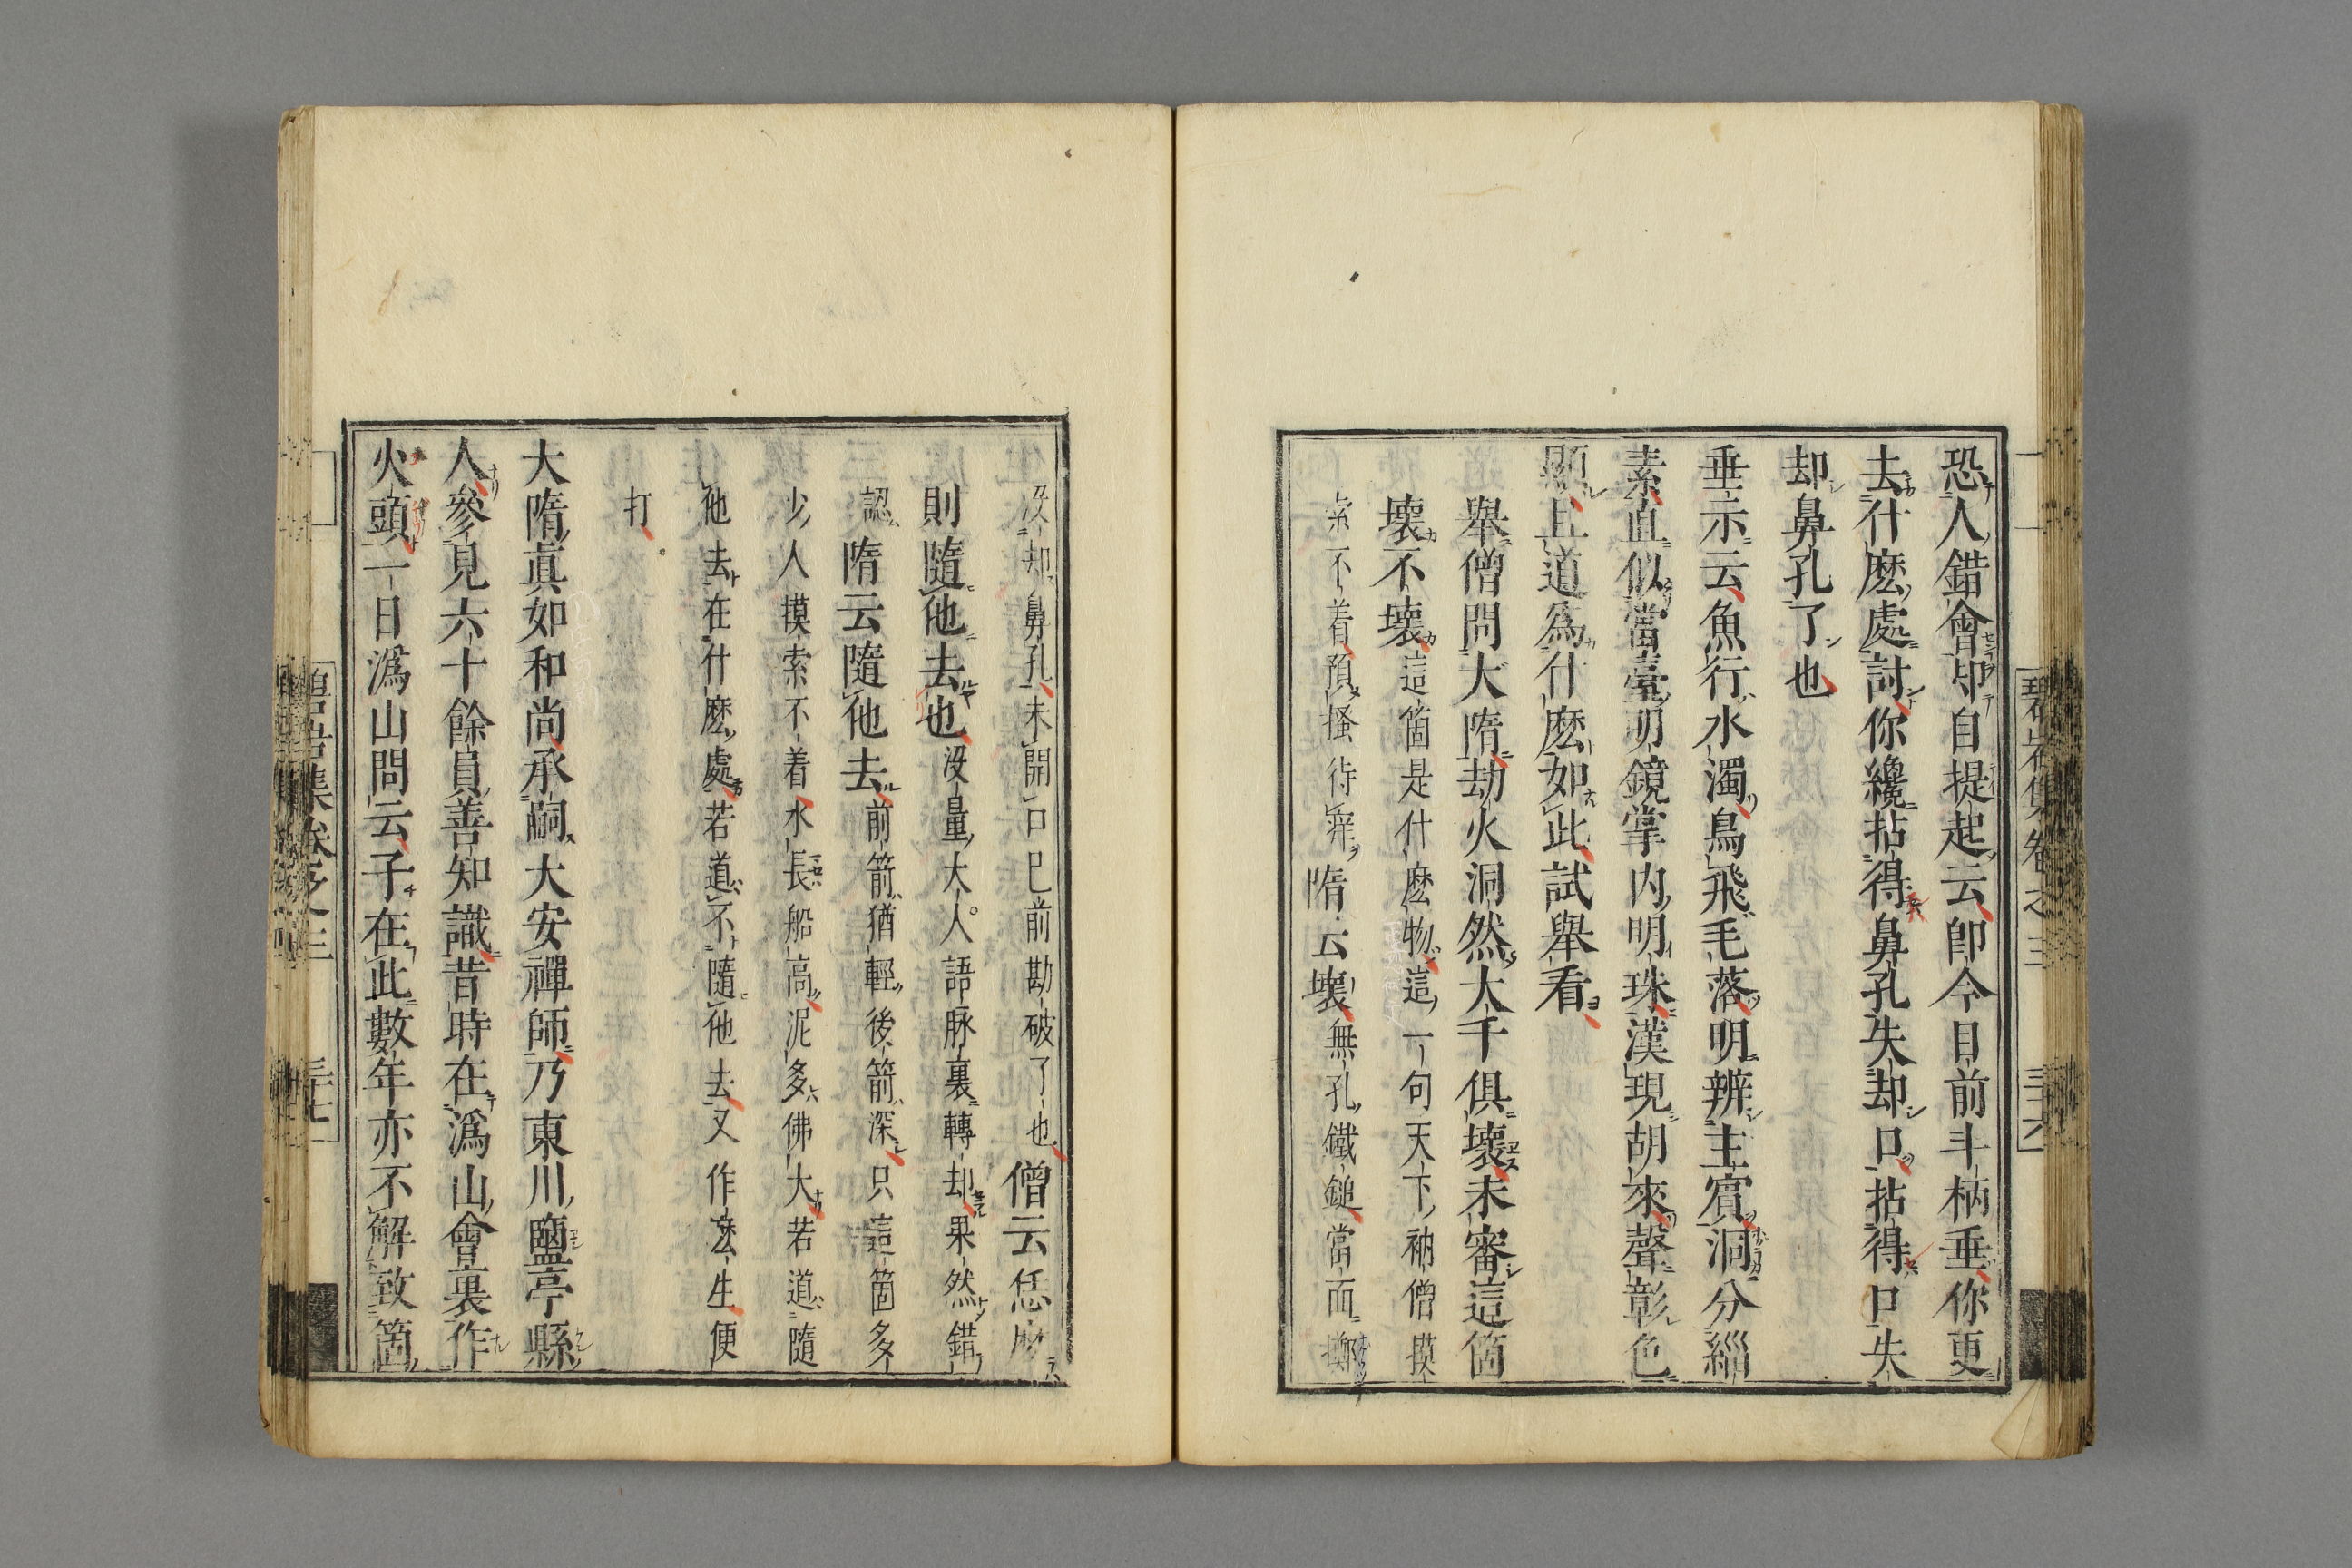 恐人錯會却自提起云卽今目前斗柄垂你更
去什麽處討你纔拈得鼻孔失却口拈得口失
却鼻孔了也
垂示云魚行水濁鳥飛毛落明辨主賓洞分緇
素直似當臺明鏡掌内明珠漢現胡來聲彰色
顯且道爲什麽如此試舉看
舉僧問大隋劫火洞然大千俱壞未審這箇
壞不壞這箇是什麽物這一句天下衲僧摸
索不着預搔待痒隋云壞無孔鐵鎚當面擲
沒却鼻孔未開口已前勘破了也僧云恁麽
則隨他去也沒量大人語脉裏轉却果然錯
認隋云隨他去前箭猶輕後箭深只這箇多
少人摸索不着水長船高泥多佛大若道隨
他去在什麽處若道不隨他去又作麽生便
打
大隋眞如和尚承嗣大安禪師乃東川鹽亭縣
人參見六十餘員善知識昔時在潙山會裏作
火頭一日潙山問云子在此數年亦不解致箇
碧岩集卷之三
三十六
三十七